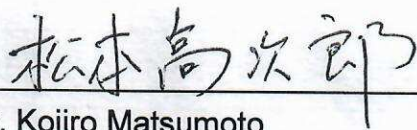 松本高次郎
. Kojiro Matsumoto